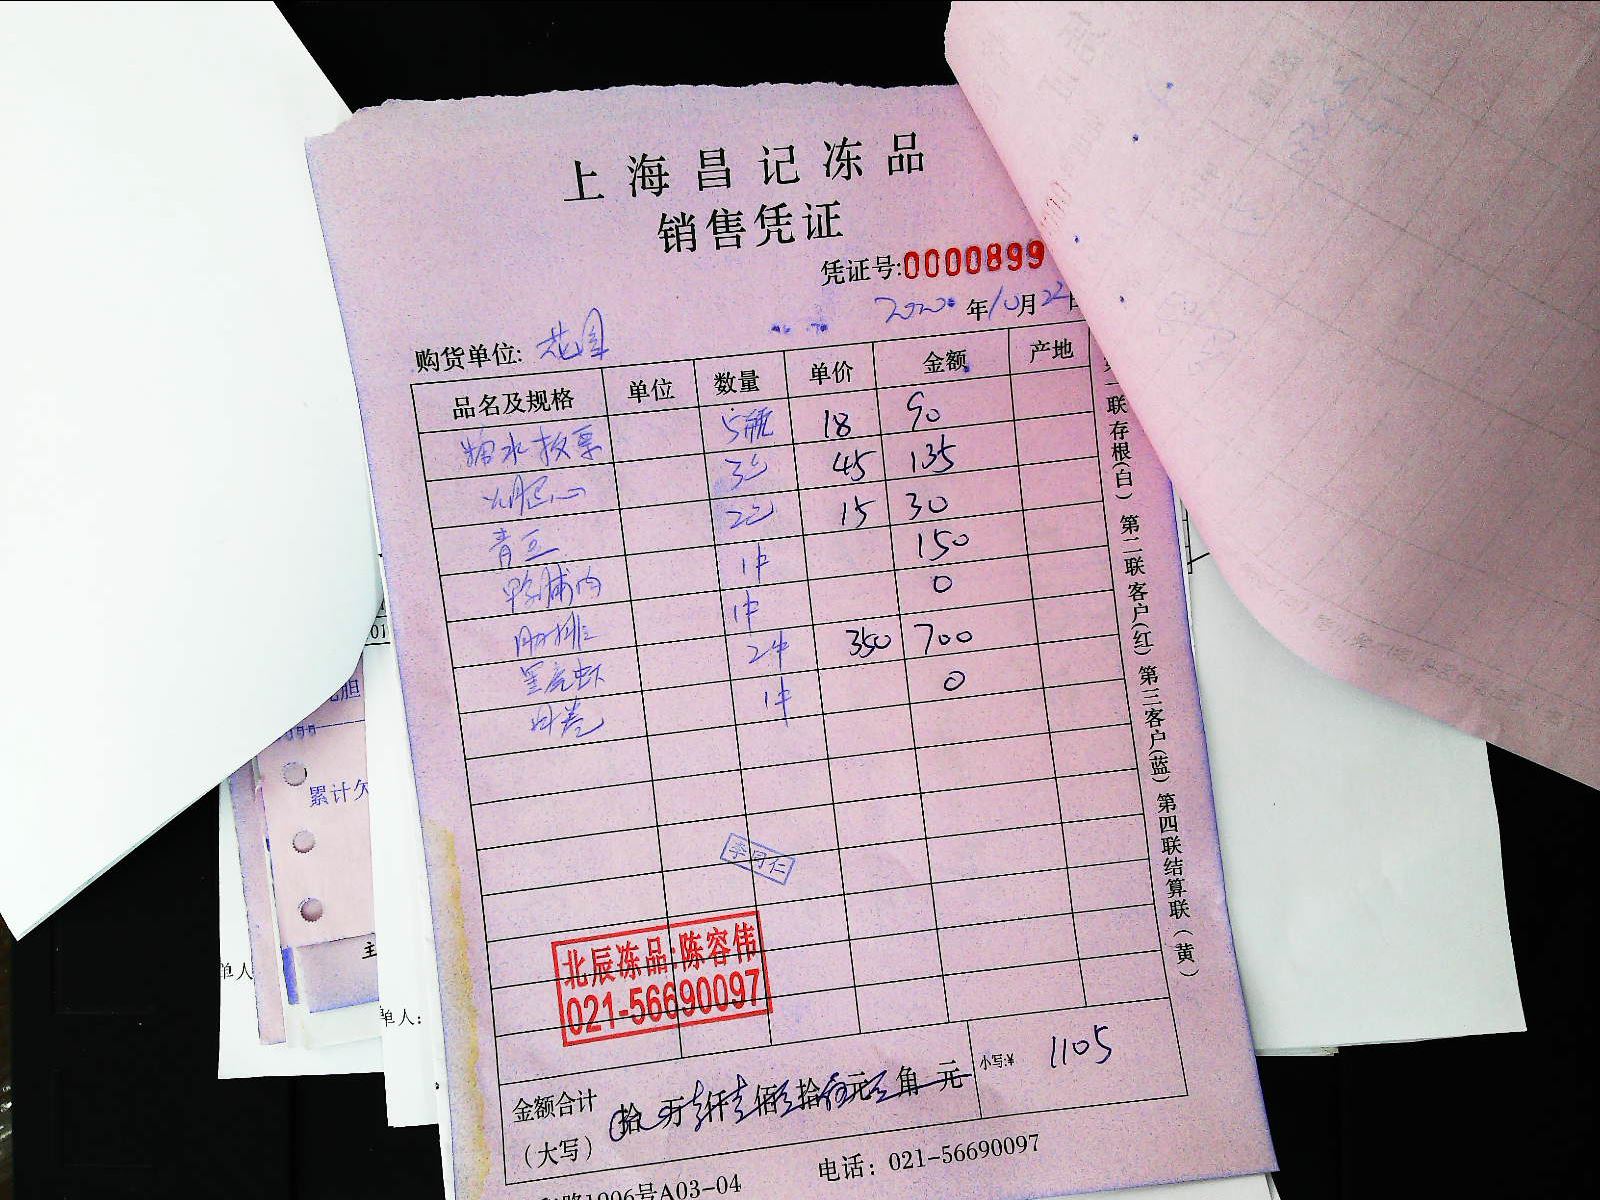 上海昌记冻品
销售凭证
凭证号:0000899
2020年10月22日
购货单位: 花园
品名及规格 单位 数量 单价 金额 产地
糖水板栗 5瓶 18 90
3包 45 135
青豆 2包 15 30
鸭脯肉 1件 150
肋排 1件 0
黑虎虾 2件 350 700
1件 0
李同仁
北辰冻品:陈容伟
021-56690097
金额合计
(大写)
拾 万 仟 佰 拾 元 角 元
小写:¥ 1105
电话: 021-56690097
路1006号A03-04
联存根(白) 第二联客户(红) 第三客户(蓝) 第四联结算联(黄)
累计欠
单人
单人: